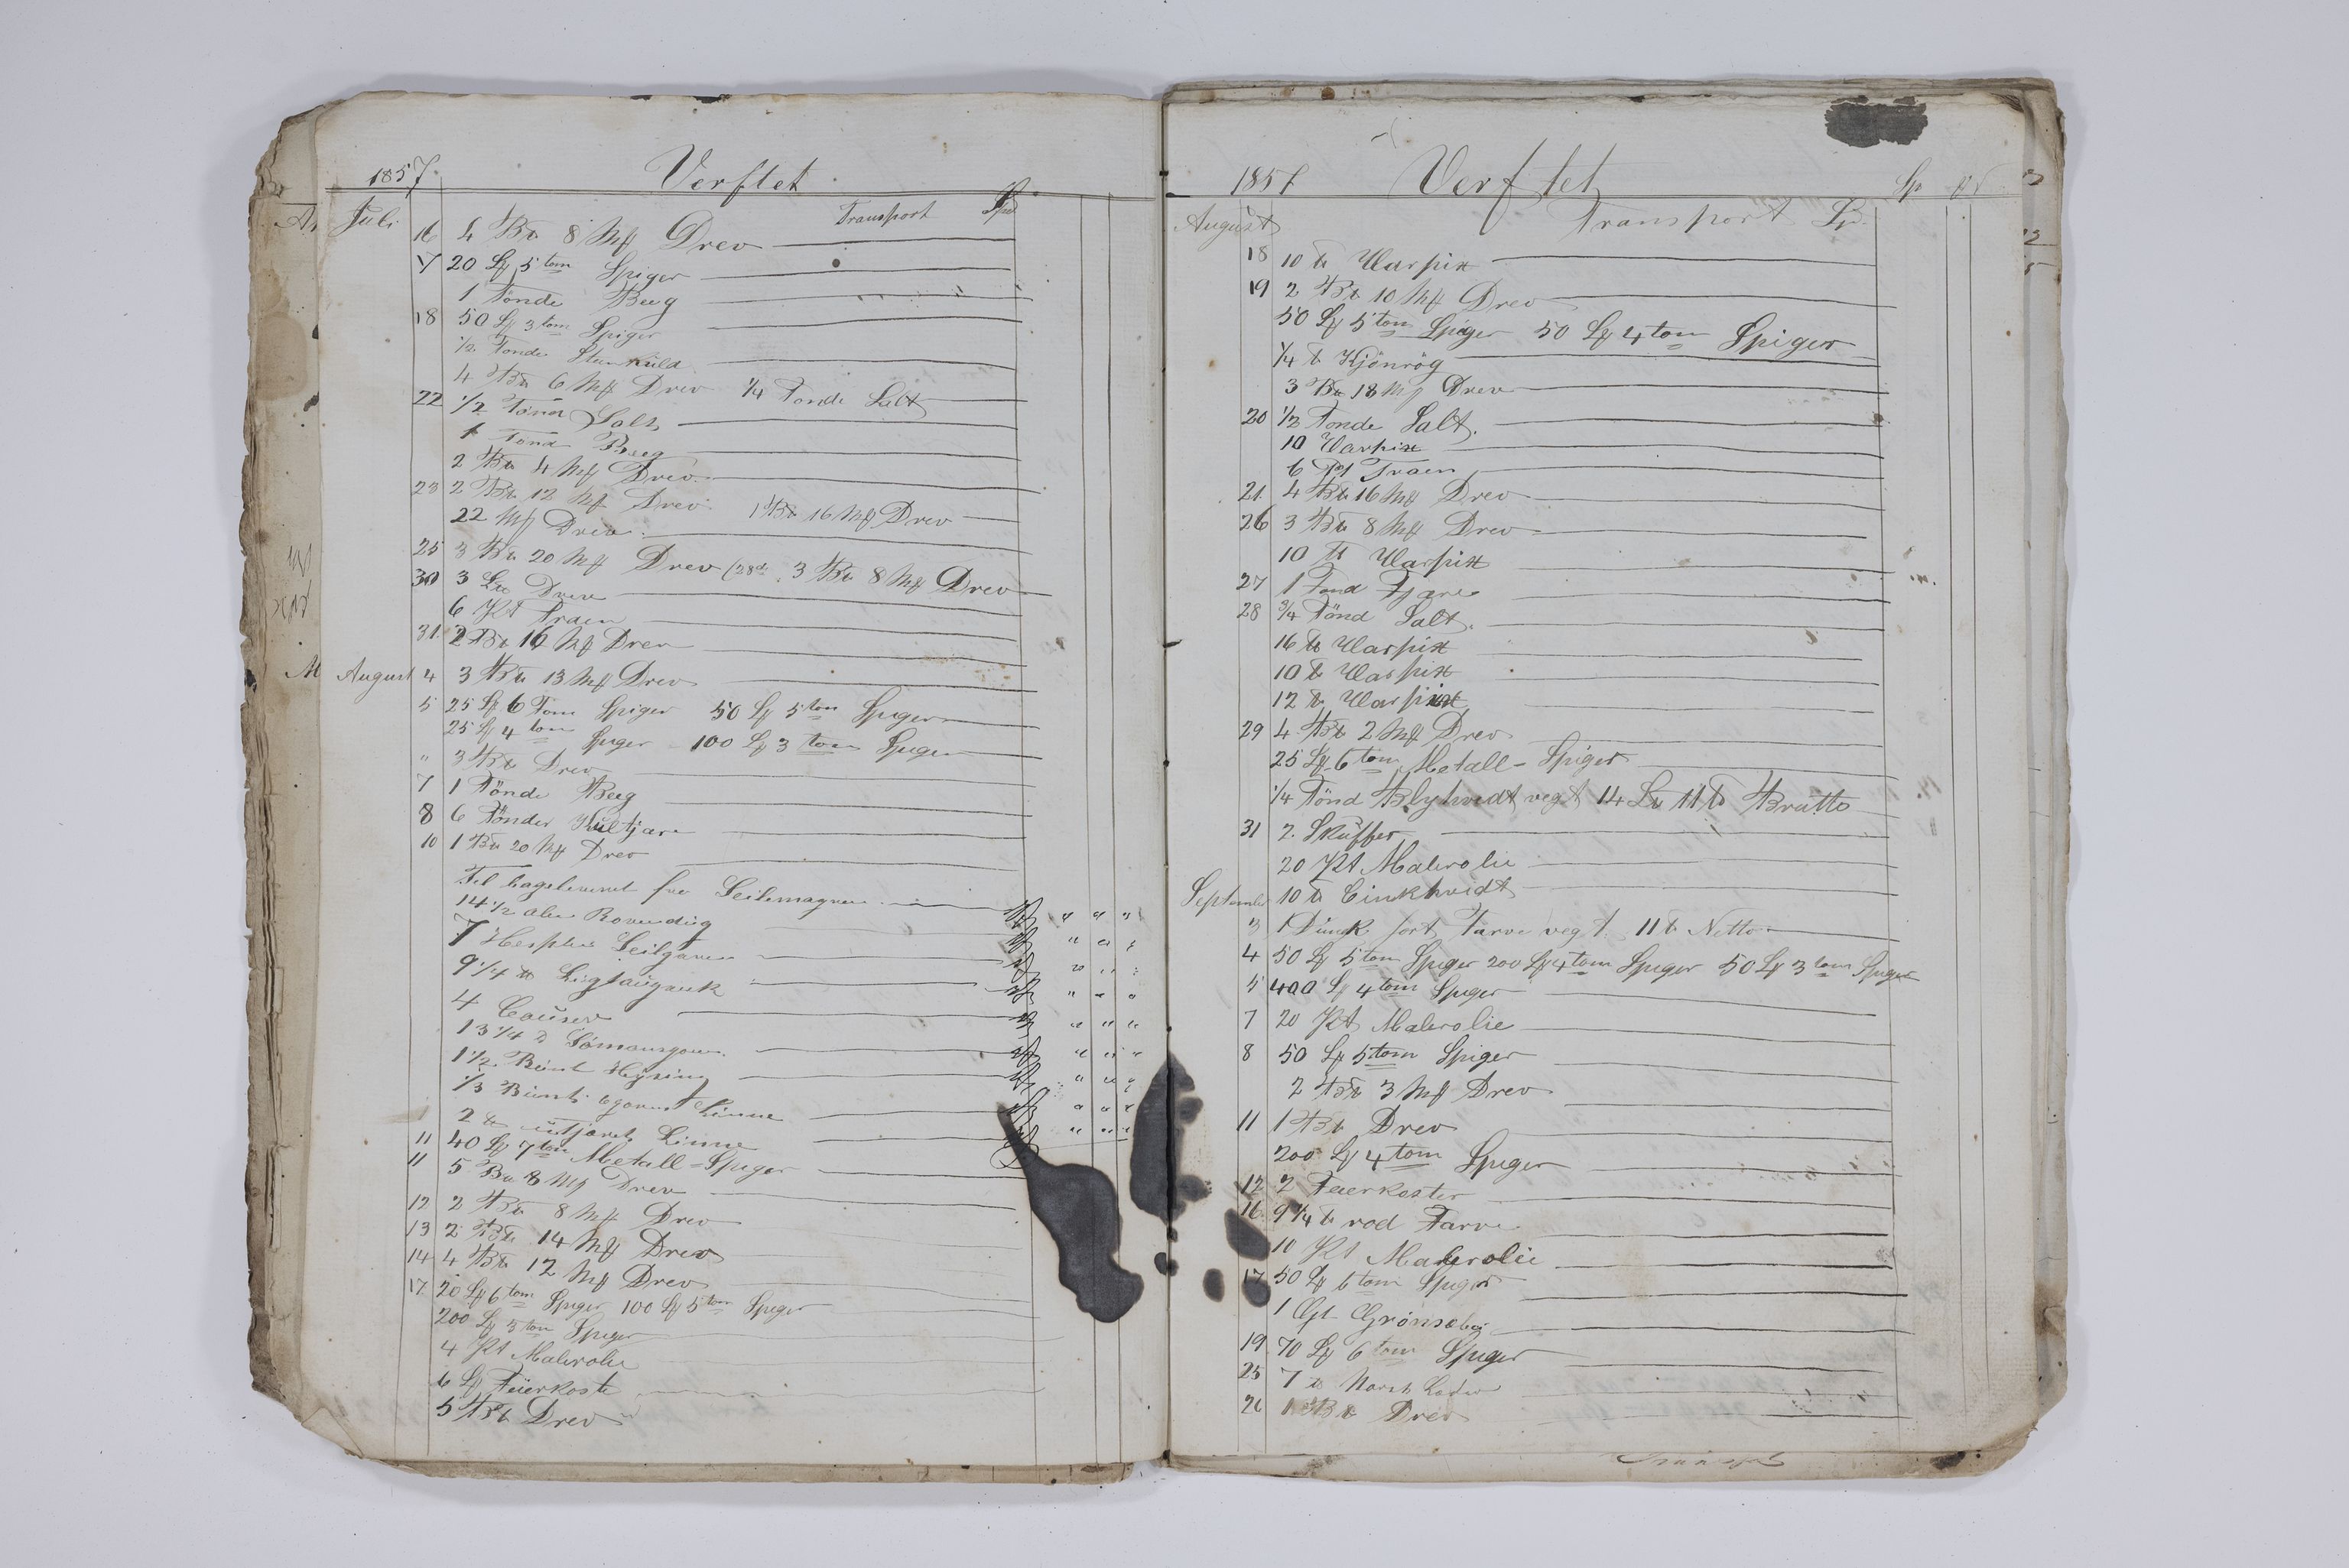 1857. Verftet
Juli Transport Spd
16 4 B℔ 8 Mk Drev
17 20 St 5 tom Spiger
1 Tönde Beeg
18 50 St 3 tom Spiger
1/2 Tonde Steenkuld
4 B℔ 6 Mk Drev 1/4 Tonde Salt
22 1/2 Tönd Salt
1 Tönd Beeg
2 B℔ 4 Mk Drev
23 2 B℔ 12 Mk Drev 1 B℔ 16 Mk Drev
22 Mk Drev
25 3 B℔ 20 Mk Drev (28de 3 B℔ 8 Mk Drev
30 3 L℔ Drev
6 Pt Traen
31 2 B℔ 16 Mk Drev
August 4 3 B℔ 13 Mk Drev
5 25 St 6 Tom Spiger 50 St 5 tom Spiger
25 St 4 tom Spiger 100 St 3 tom Spiger
" 3 B℔ Drev
7 1 Tönde Beeg
8 6 Tönder Kultjære
10 1 B℔ 20 Mk Drev
Tilbageleveret fra Seilemageren
14 1/2 alen Ravendug " " "
7 Hespler Seilgarn " " "
9 1/4 ℔ " "
4 Couser " " "
13 1/4 ℔ " " "
1 1/2 Bundt Hysing " " "
1/3 Bundt Linne " " "
2 ℔ utjæret Linne " " "
11 40 St 7 tom Metall-Spiger
11 5 B℔ 8 Mk Drev
12 2 B℔ 8 Mk Drev
13 2 B℔ 14 Mk Drev
14 4 B℔ 12 Mk Drev
17 20 St 6 tom Spiger 100 St 5 tom Spiger
200 St 3 tom Spiger
4 Pt Malerolie
6 St Feierkoste
5 B℔ Drev
1857 Verftet Sp
August Transport Spd.
18 10 ℔ Harpix
19 2 B℔ 10 Mk Drev
50 St 5 tom Spiger 50 St 4 tom Spiger
1/4 ℔ Kjönrög
3 B℔ 18 Mk Drev
20 1/2 Tonde Salt.
10 Harpix
6 Pt Traen
21. 4 B℔ 16 Mk Drev
26 3 B℔ 8 Mk Drev
10 ℔ Harpix
27 1 Tönd Tjære
28 3/4 Tönd Salt.
16 ℔ Harpix
10 ℔ Harpix
12 ℔ Harpix
29 4 B℔ 2 Mk Drev
25 St 6 tom Metall-Spiger
1/4 Tönd Blyhvidt vegt 14 L℔ 11 ℔ Brutto
31 2 Skuffer
20 Pt Malerolie
September 10 ℔ Cinkhvidt
3 1 Dunk sort Farve vegt. 11 ℔ Netto
4 50 St 5 tom Spiger 200 St 4 tom Spiger 50 St 3 tom Spiger
5 400 St 4 tom Spiger
7 20 Pt Malerolie
8 50 St 5 tom Spiger
2 B℔ 3 Mk Drev
11 1 B℔ Drev
200 St 4 tom Spiger
12 2 Feierkoster
16 9 1/4 ℔ rod Farve
10 Pt Malerolie
17 50 St 6 tom Spiger
1 Gl. Grönsæbe
19 70 St 6 tom Spiger
25 7 ℔ Norsk Læder
26 1 B℔ Drev
Transport